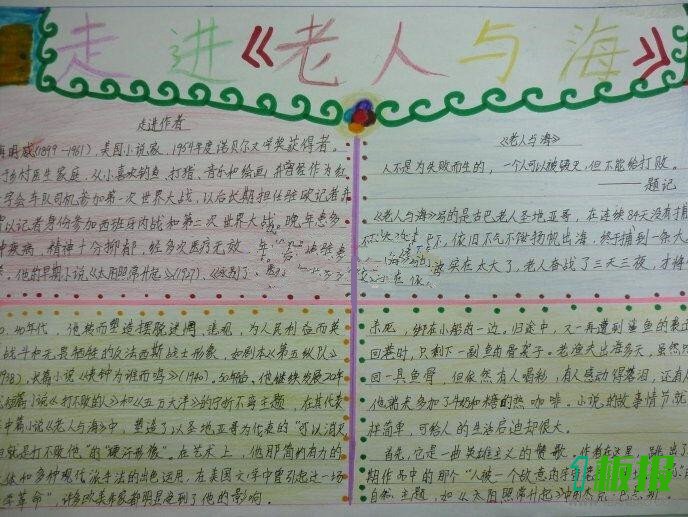 走进《老人与海》
走进作者
明威(1899-1961),美国小说家,1954年度诺贝尔文学奖获得者。
乡村医生家庭,从小喜欢钓鱼、打猎、音乐和绘画,曾作为红
字会车队司机参加第一次世界大战,以后长期担任驻欧记者并
以记者身份参加西班牙内战和第二次世界大战。晚年患多
疾病,精神十分抑郁,经多次医疗无效
他的早期小说《太阳照常升起》(1927)、《永别了
年代,他转而塑造摆脱迷惘、悲观,为人民利益而英
战斗和无畏牺牲的反法西斯战士形象,如剧本《第五纵队》
长篇小说《丧钟为谁而鸣》(1940)。50年代后,他继续发展20年
短篇小说《打不败的人》和《五万大洋》的宁折不弯主题,在其代表
中篇小说《老人与海》中,塑造了以圣地亚哥为代表的“可以消灭
就是打不败他”的“硬汉形象”。在艺术上,他那简约有力的
体和多种现代派手法的出色运用,在美国文学中曾引起过一场
革命”,许多欧美作家都明显受到了他的影响。
《老人与海》
人不是为失败而生的,一个人可以被毁灭,但不能给打败。
——题记
《老人与海》写的是古巴老人圣地亚哥,在连续84天没有捕
依旧不气不馁扬帆出海,终于捕到一条大
实在太大了,老人奋战了三天三夜,才将
杀死,绑在小船的一边,归途中,又一再遭到鲨鱼的袭
回港时,只剩下一副鱼的骨架子。老渔夫出海多天,虽然
回一具鱼骨,但依然有人喝彩,有人感动得落泪,还有
他捎来多加了牛奶和糖的热咖啡。小说的故事情节就
样简单,可给人的生活启迪却很大。
首先,它是一曲英雄主义的赞歌。作者在这里,跳出了
期作品中的那个“人被一个敌意
自然”主题,如《太阳照常升起》中的杰克·巴恩斯
板报